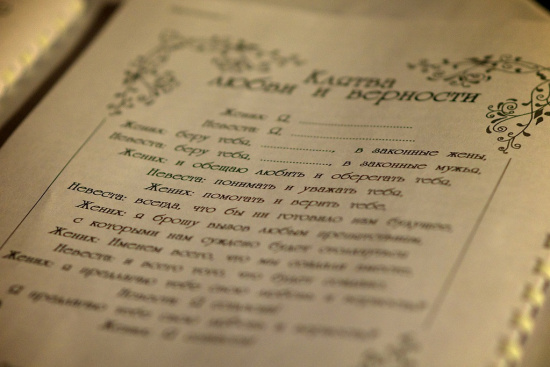 Клятва
любви и верности
Жених: Я, ....................
Невеста: Я, ....................
Жених: беру тебя, ...................., в законные жены,
Невеста: беру тебя, ...................., в законные мужья,
Жених: и обещаю любить и оберегать тебя,
Невеста: понимать и уважать тебя,
Жених: помогать и верить тебе,
Невеста: всегда, что бы ни готовило нам будущее,
Жених: я брошу вызов любым препятствиям,
с которыми нам суждено будет столкнуться
Жених: Именем всего, что мы
Невеста: и всего того, что будет
Жених: я предлагаю тебе свою любовь и
Я предлагаю тебе свою любовь и
Невеста: Я
Жених: Я